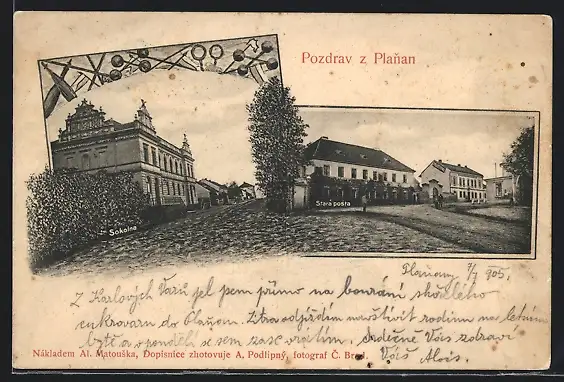 Pozdrav z Plaňan
Sokolna
Stará pošta
Plaňany 7/7 905.
Z Karlových Varů jel jsem přímo na bourání shořelého
cukrovaru do Plaňan. Zítra odjíždím navštívit rodinu na letním
bytě a opouštěti se sem zase vrátím. Srdečně Vás zdraví
Váš Alois.
Nákladem Al. Matouška, Dopisnice zhotovuje A. Podlipný, fotograf Č. Brod.